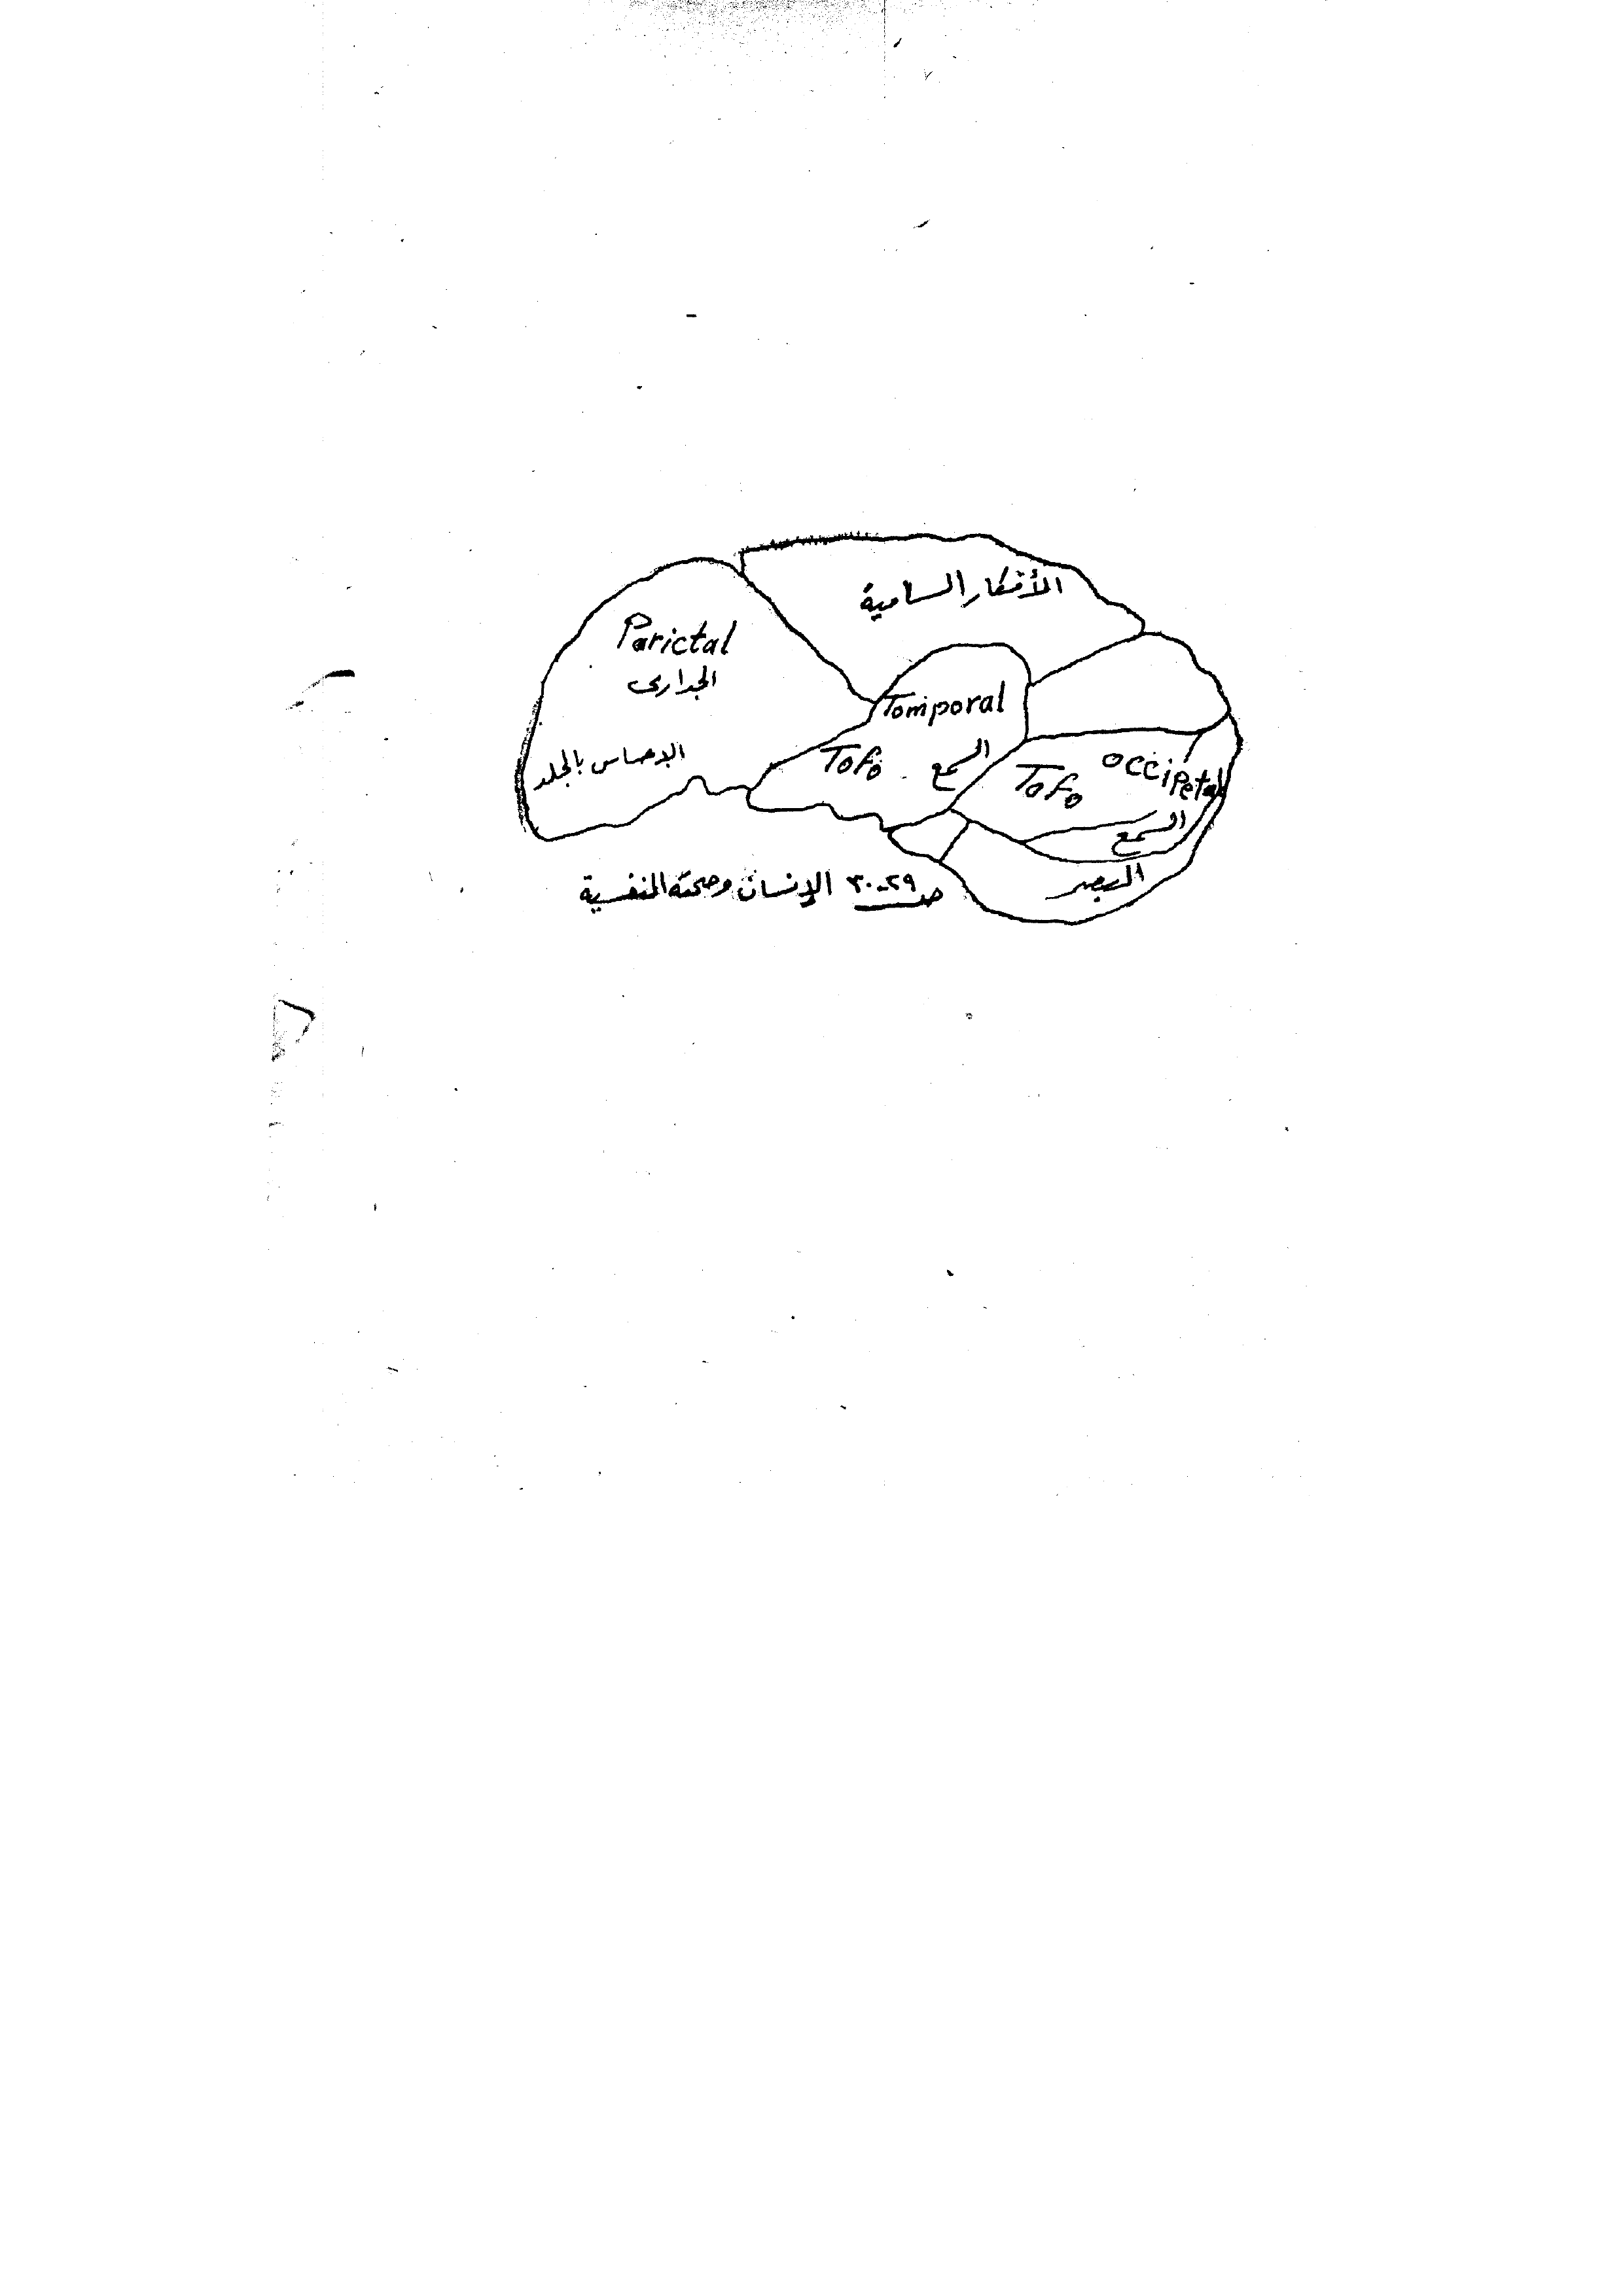 الأفكار السامية
Parictal
الجدارى
الإحساس بالجلد
Tomporal
Tofo
السمع
occipetal
Tofo
السمع
البصر
صـ ٢٩-٣٠ الإنسان وصحته النفسية